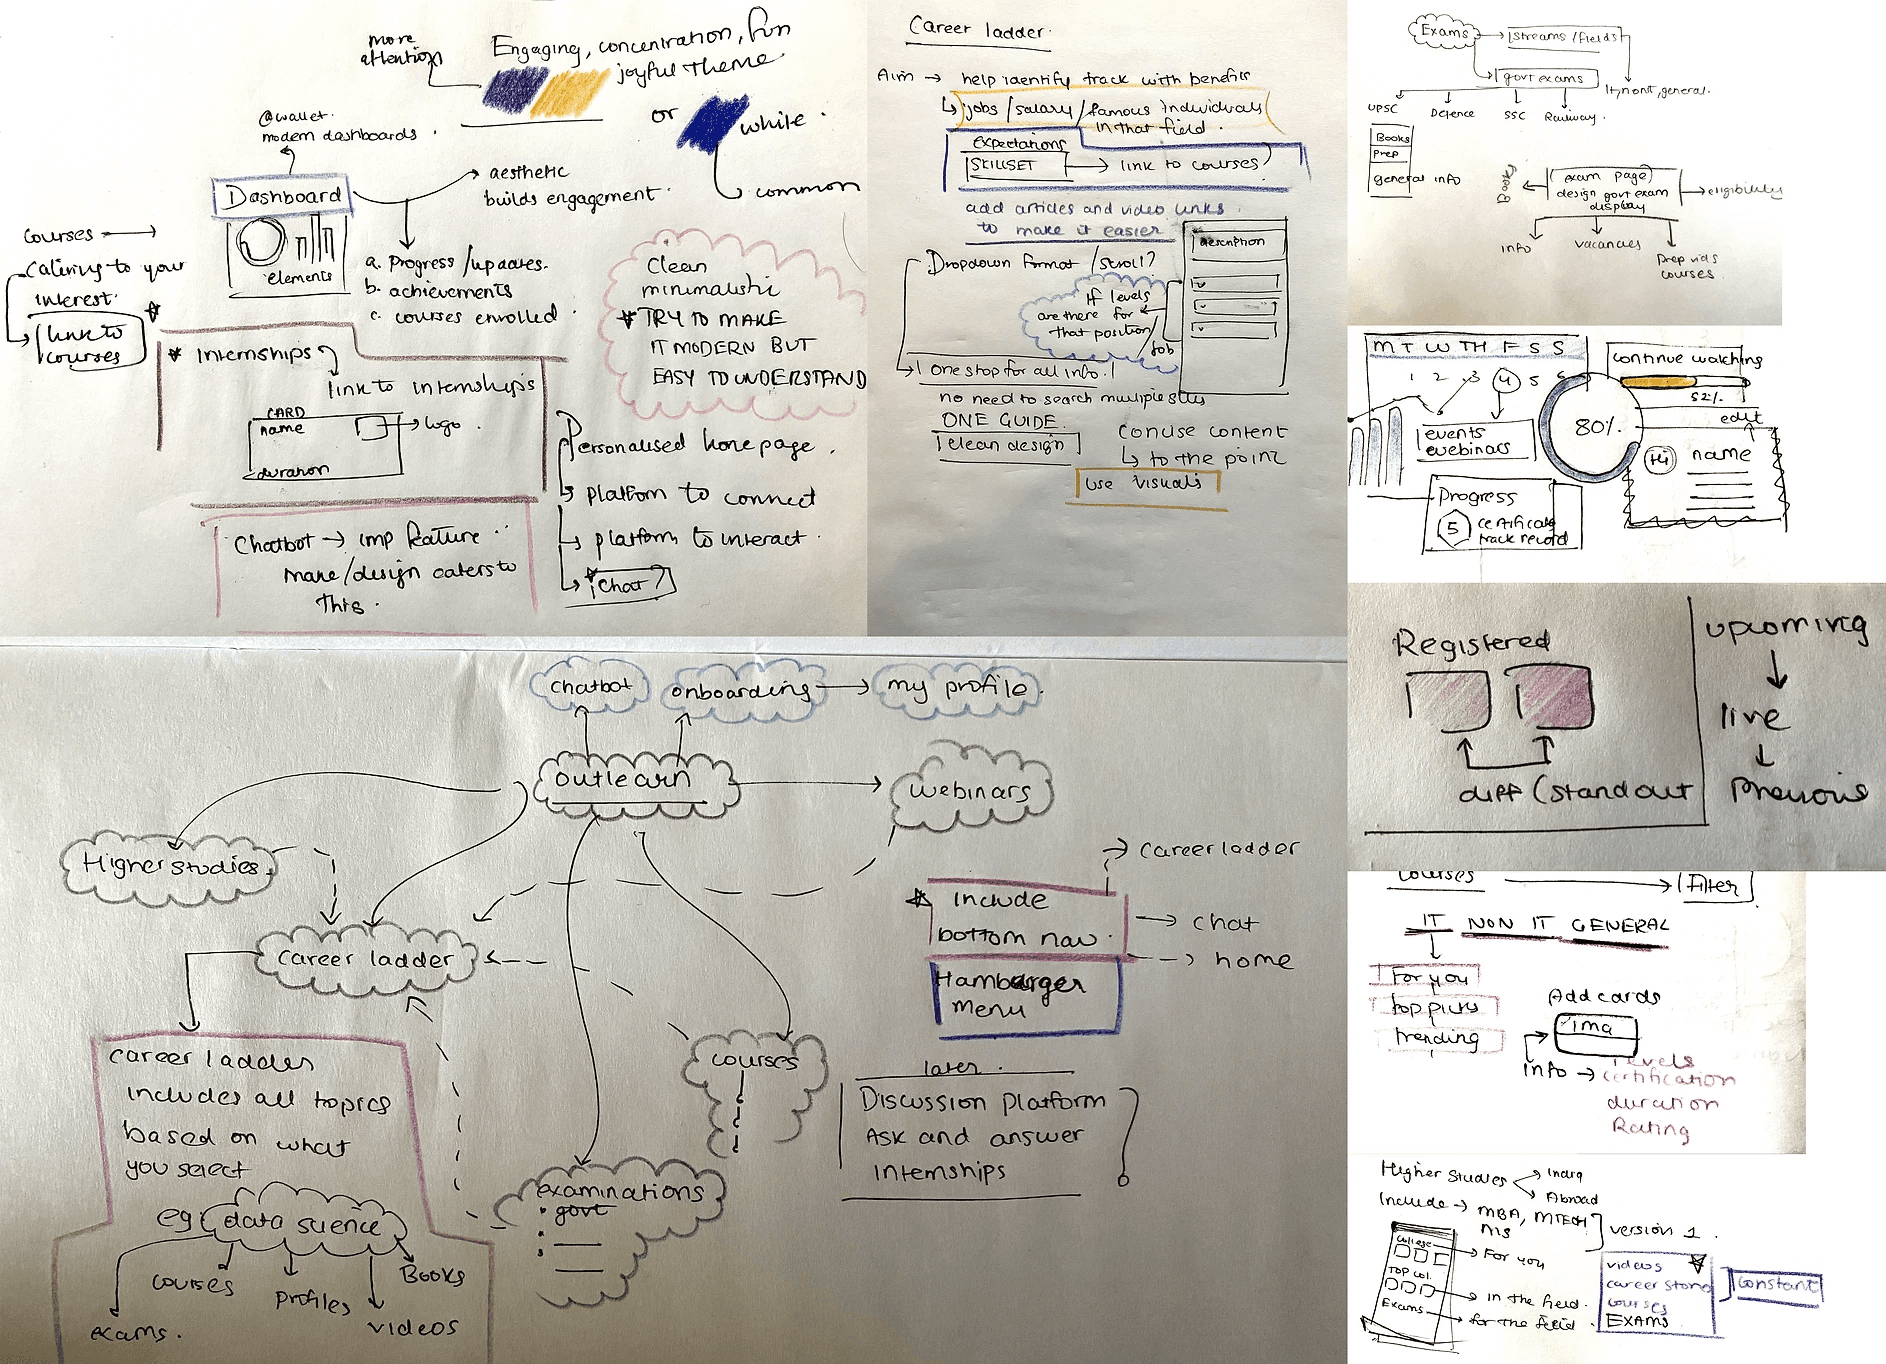 more
attention
Engaging, concentration, fun
joyful theme.
or
white.
common
@wallet.
modern dashboards.
Dashboard
aesthetic
builds engagement.
elements
courses
catering to your
interest.
link to
courses
a. progress/updates.
b. achievements
c. courses enrolled.
Clean
minimalistic
TRY TO MAKE
IT MODERN BUT
EASY TO UNDERSTAND
Internships
link to internships
CARD
name
logo.
duration
Personalised home page.
platform to connect
platform to interact.
Chat?
Chatbot → imp feature.
make/design caters to
this.
Career ladder.
Aim → help identify track with benefits
jobs/salary/famous individuals
in that field.
expectations
SKILLSET → link to courses?
add articles and video links.
to make it easier
description
Dropdown format/scroll?
If levels
are there for
that position/
job
One stop for all info.
no need to search multiple sites
ONE GUIDE.
clean design
Concise content
to the point
use visuals
Exams → streams/fields
govt exams
It, non it, general.
UPSC
Defence
SSC
Railway.
Books
Prep
general info
Books
(exam page)
design govt exam
display
eligibility
info
vacancies
prep vids
courses.
M T W TH F S S
1 2 3 4 5 6
events
webinars
80%.
continue watching
52%.
edit
Hi
name
Progress
5 certificate
track record
Registered
diff (standout
upcoming
live
previous
chatbot
onboarding → my profile.
outlearn
webinars
Higher studies.
career ladder
career ladder
includes all topics
based on what
you select
eg: data science
exams.
courses
profiles
videos
Books
courses
examinations
govt
Include
bottom nav.
career ladder
chat
home
Hamburger
menu
later.
Discussion platform
Ask and answer
internships
courses → Filter
IT NON IT GENERAL
For you
top picks
trending
Add cards
ima
info → levels
certification
duration
Rating
Higher studies
India
Abroad
Include → MBA, MTECH
MS
version 1.
college
For you
TOP col.
in the field.
Exams
for the field.
videos
career store
courses
EXAMS
constant